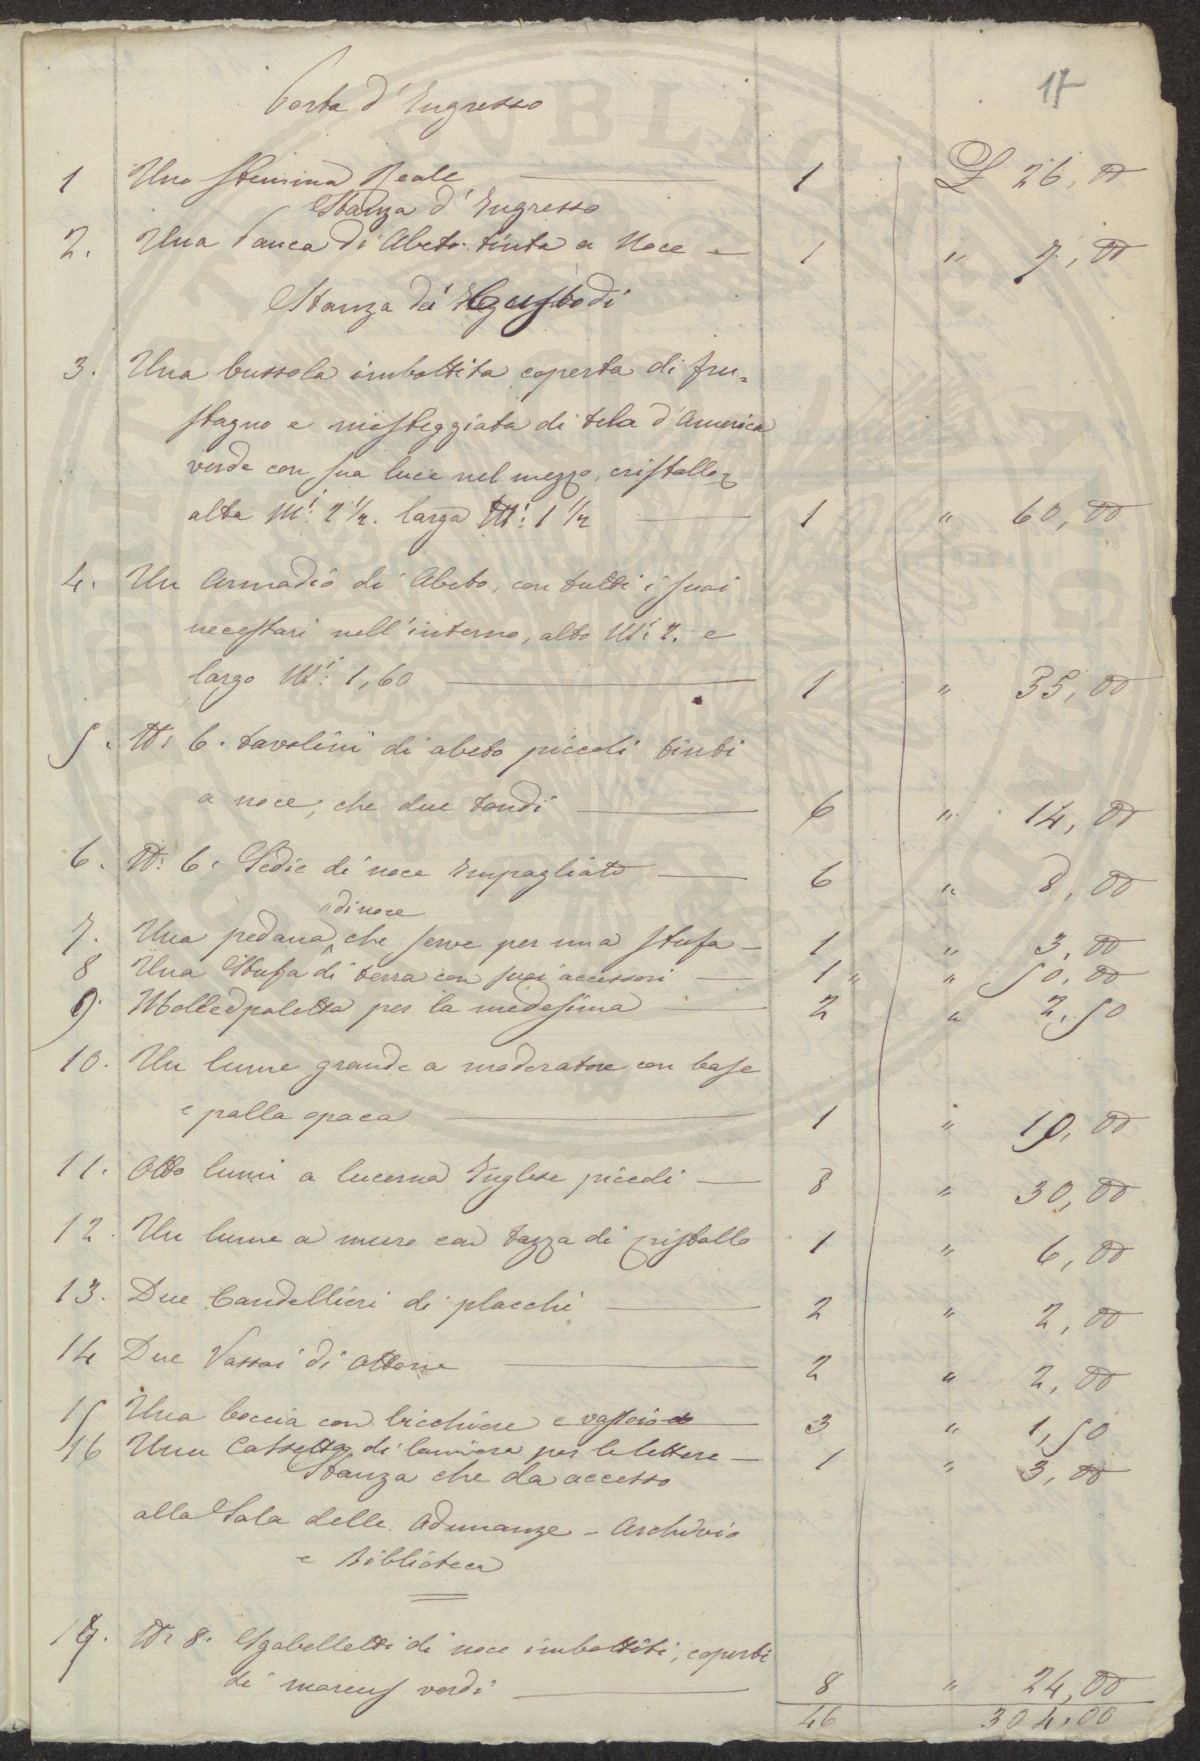 17
Porta d'Ingresso
1 Uno Stemma Reale 1 L 26,00
Stanza d'Ingresso
2. Una Panca di Abeto tinta a Noce 1 " 7,00
Stanza di Custodi
3. Una bussola imbottita coperta di fru=
stagno e mosteggiata di tela d'America
verde con sua luce nel mezzo, cristallo
alta M.i 2 1/2. larga M.i 1 1/2 1 " 60,00
4. Un Armadio di Abeto, con tutti i suoi
necessari nell'interno, alto M.i 2. e
largo M.i 1,60 1 " 35,00
5. N: 6. tavolini di abeto piccoli tinti
a noce, che due tondi 6 " 14,00
6. N: 6. Sedie di noce Impagliate 6 " 8,00
di noce
7. Una pedana che serve per una stufa 1 " 3,00
8 Una Stufa di terra con suoi accessori 1 " " 50,00
9. Molle e paletta per la medesima 2 " 2,50
10. Un lume grande a moderatore con base
e palla opaca 1 " 10,00
11. Otto lumi a lucerna Inglese piccoli 8 " 30,00
12. Un lume a muro con tazza di cristallo 1 " 6,00
13. Due Candellieri di placchè 2 " 2,00
14 Due Vassoi di Ottone 2 " 2,00
15 Una boccia con bicchiere e vassoio 3 " 1,50
16 Una Cassetta di lamiera per le lettere 1 " 3,00
Stanza che da accesso
alla Sala delle Adunanze - Archivio
e Biblioteca
17. N: 8. Sgabelletti di noce imbottiti, coperti
di verdi 8 " 24,00
46 304.00